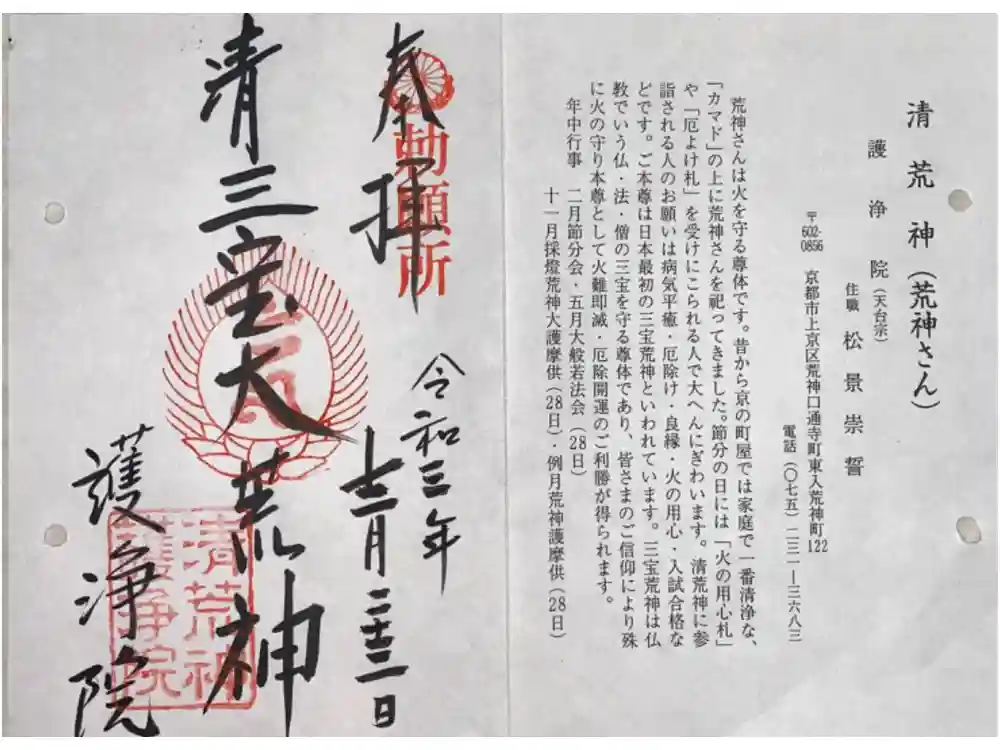 清荒神(荒神さん)
護浄院(天台宗)
住職 松景崇誓
〒602-0856 京都市上京区荒神口通寺町東入荒神町122
電話(〇七五)二三一―三六八三
荒神さんは火を守る尊体です。昔から京の町屋では家庭で一番清浄な、
「カマド」の上に荒神さんを祀ってきました。節分の日には「火の用心札」
や「厄よけ札」を受けにこられる人で大へんにぎわいます。清荒神に参
詣される人のお願いは病気平癒・厄除け・良縁・火の用心・入試合格な
どです。ご本尊は日本最初の三宝荒神といわれています。三宝荒神は仏
教でいう仏・法・僧の三宝を守る尊体であり、皆さまのご信仰により殊
に火の守り本尊として火難即滅・厄除開運のご利勝が得られます。
年中行事 二月節分会・五月大般若法会(28日)
十一月採燈荒神大護摩供(28日)・例月荒神護摩供(28日)
奉拝
勅願所
令和三年
十二月二十三日
清三宝大荒神
護浄院
清荒神
護浄院